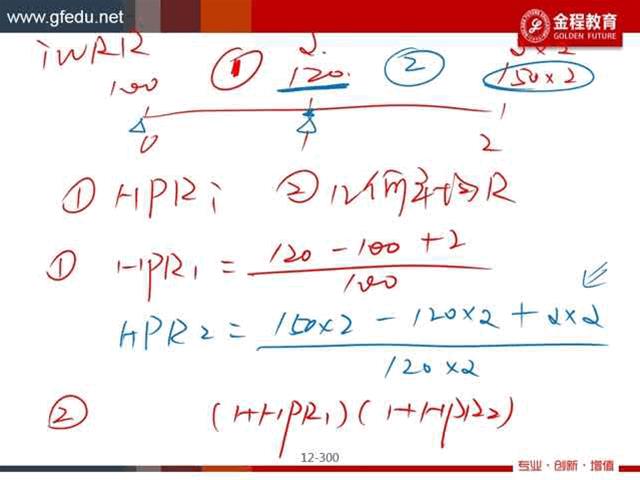 www.gfedu.net
金程教育
GOLDEN FUTURE
2.
100 ① 120. ② 150×2
0 1 2
① HPR; ② 几何平均R
① HPR₁ = 120 - 100 + 2
100
HPR₂ = 150×2 - 120×2 + 2×2
120×2
② (1+HPR₁)(1+HPR₂)
12-300
专业·创新·增值